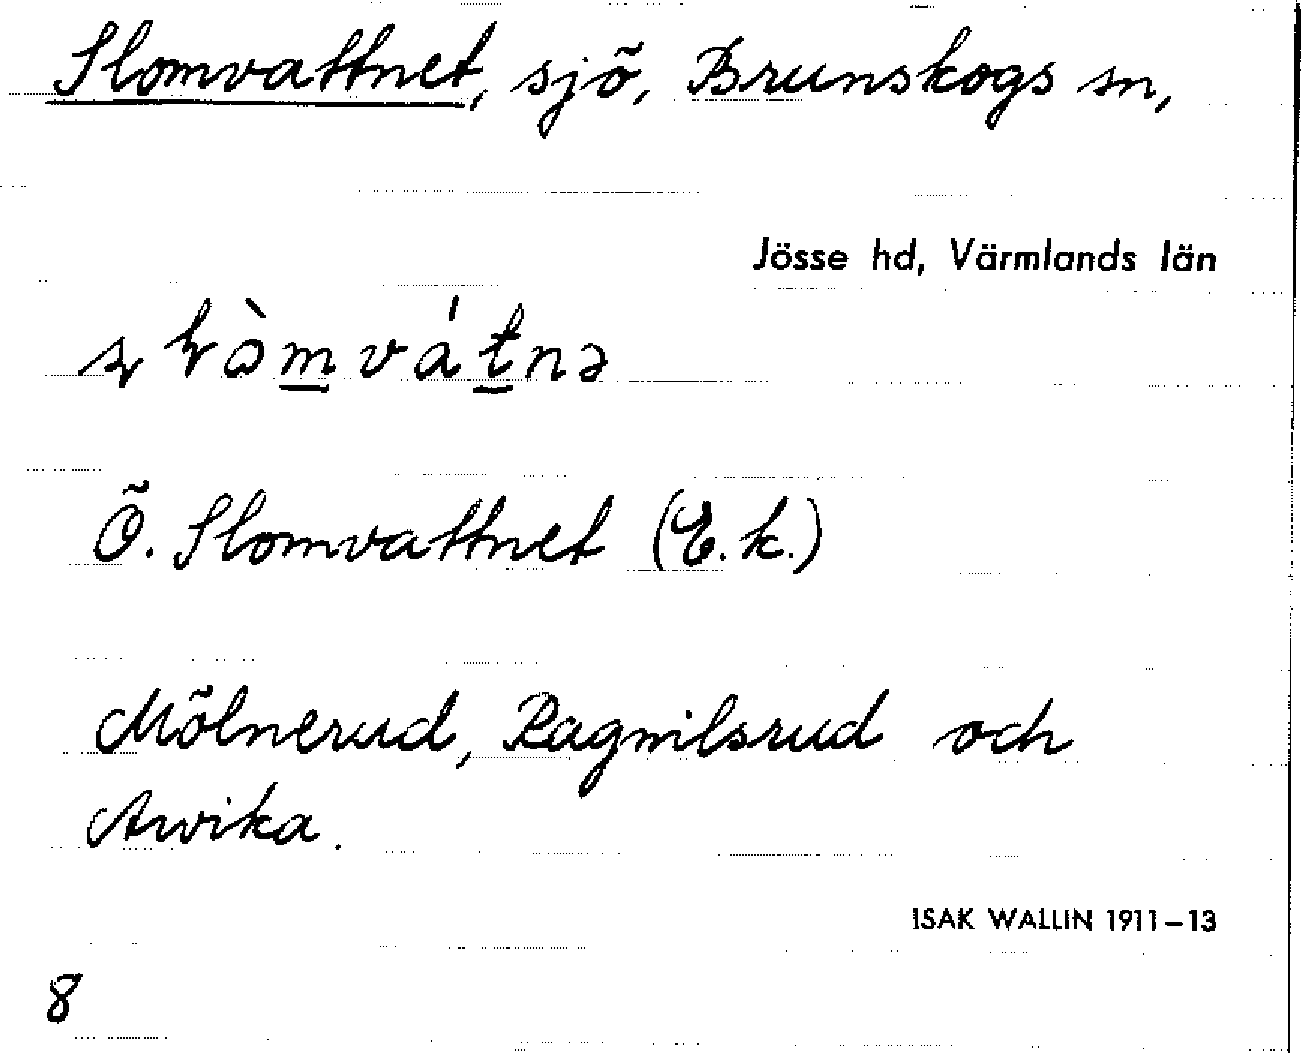 Slomvattnet, sjö, Brunskogs sn,
Jösse hd, Värmlands län
Ö. Slomvattnet (E.k.)
Mölnerud, Ragnilsrud och
Arvika.
ISAK WALLIN 1911–13
8